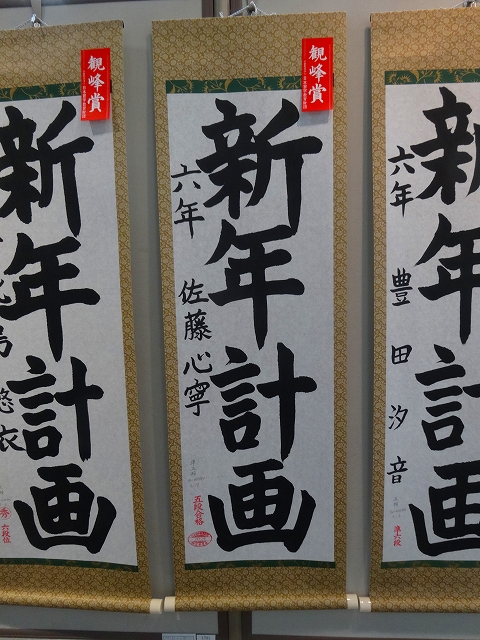 観峰賞
新年計画
六年 豊田汐音
準六段
観峰賞
新年計画
六年 佐藤心寧
五段合格
新年計画
悠衣
秀 六段位